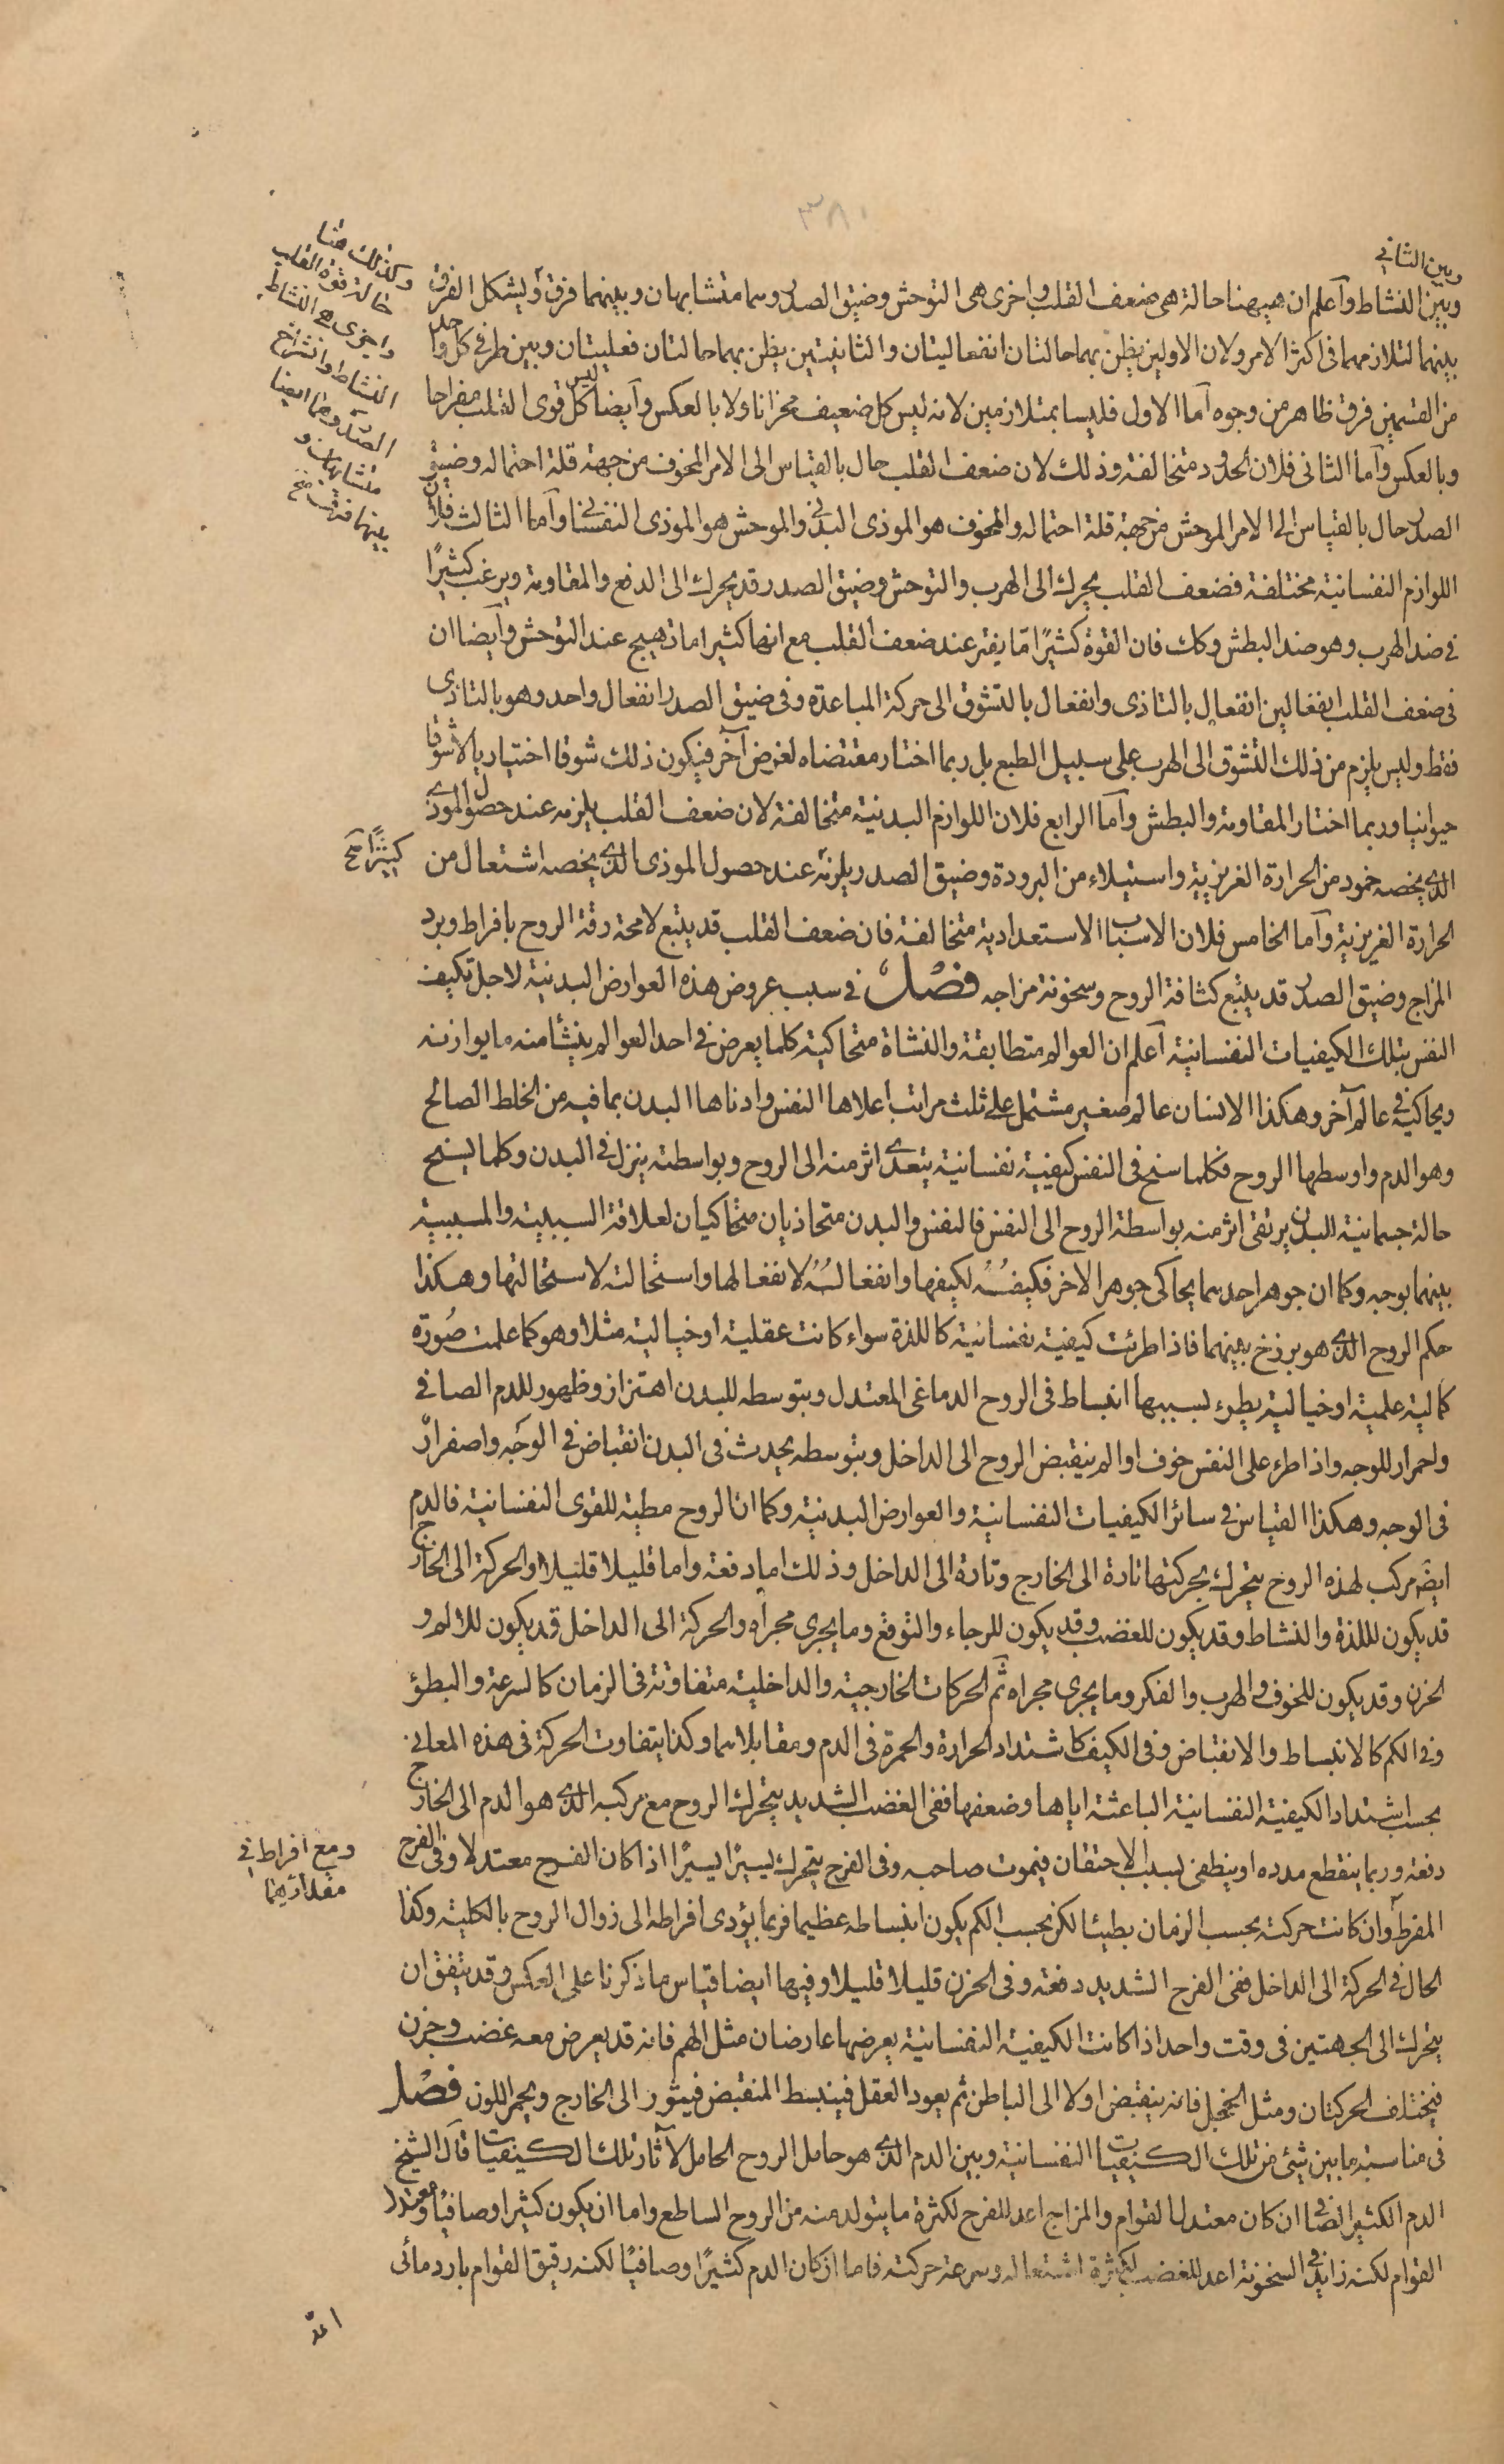 ٣٨١
وبين الثاني
وبين النشاط وآعلم ان هيهنا حالة هى ضعف القلب واخرى هى التوحش وضيق الصدر وسما متشابهان وبينهما فرق وٓيشكل الفرق
بينهما لتلازمهما فى اكثر الامر ولان الاولين يظن بهما حالتان انفعاليتان والثانيتين يظن بهما حالتان فعليتان وبين طرفي كل واحد
من القسمين فرق ظاهر من وجوه آما الاول فليسا بمتلازمين لانه ليس كل ضعيف محزانا ولا بالعكس وآيضا ليس كل قوى القلب مفراحا
وبالعكس وآما الثانى فلان الحدود متخالفة وذلك لان ضعف القلب حال بالقياس الى الامر المخوف من جهة قلة احتماله وضيق
الصدر حال بالقياس الى الامر الموحش من جهة قلة احتماله والمخوف هو الموذى البدني والموحش هو الموذى النفساني وآما الثالث فلان
اللوازم النفسانية مختلفة فضعف القلب يحرك الى الهرب والتوحش وضيق الصدر قد يحرك الى الدفع والمقاومة ويرغب كثيرًا
فى ضد الهرب وهو ضد البطش وكك فان القوة كثيرًا مّا يفتر عند ضعف القلب مع انها كثيرا ما تهيج عند التوحش وآيضا ان
فى ضعف القلب انفعالين انفعال بالتاذى وانفعال بالتشوق الى حركة المباعدة وفى ضيق الصدر انفعال واحد وهو بالتاذى
فقط وليس يلزم من ذلك التشوق الى الهرب على سبيل الطبع بل ربما اختار مقتضاه لغرض آخر فيكون ذلك شوقا اختياريا لا شوقا
حيوانيا وربما اختار المقاومة والبطش وآما الرابع فلان اللوازم البدنية متخالفة لان ضعف القلب يلزمه عند حصول الموذى
الذى يخصه خمود من الحرارة الغريزية واستيلاء من البرودة وضيق الصدر يلزمه عند حصول الموذى الذى يخصه اشتعال من
الحرارة الغريزية وآما الخامس فلان الاسباب الاستعدادية متخالفة فان ضعف القلب قد يتبع لا محة رقة الروح بافراط وبرد
المزاج وضيق الصدر قد يتبع كثافة الروح وسخونة مزاجه فصل فى سبب عروض هذه العوارض البدنية لاجل تكيف
النفس بتلك الكيفيات النفسانية آعلم ان العوالم متطابقة والنشاة متحاكية كلما يعرض فى احد العوالم ينشأ منه ما يوازنه
ويحاكيه فى عالم آخر وهكذا الانسان عالم صغير مشتمل على ثلث مراتب اعلاها النفس وادناها البدن بما فيه من الخلط الصالح
وهو الدم واوسطها الروح فكلما سنح فى النفس كيفية نفسانية يتعدى اثر منه الى الروح وبواسطته ينزل فى البدن وكلما يسنح
حالة جسمانية البدن يرتقى اثر منه بواسطة الروح الى النفس فالنفس والبدن متحاذيان متحاكيان لعلاقة السببية والمسببية
بينهما بوجه وكما ان جوهر احدسما يحاكى جوهر الاخر فكيفُهُ لكيفها وانفعالُهُ لانفعالها واستحالته لاستحالتها وهكذا
حكم الروح الذى هو برزخ بينهما فاذا طرئت كيفية نفسانية كاللذة سواء كانت عقلية او خيالية مثلا وهو كما علمت صُورة
كمالية علمية او خيالية يطرء بسببها انبساط فى الروح الدماغى المعتدل وبتوسطه للبدن اهتزاز وظهور للدم الصافى
واحمرار للوجه واذا طرء على النفس خوف او الم ينقبض الروح الى الداخل وبتوسطه يحدث فى البدن انقباض فى الوجه واصفرار
فى الوجه وهكذا القياس فى سائر الكيفيات النفسانية والعوارض البدنية وكما ان الروح مطية للقوى النفسانية فالدم
ايضَ مركب لهذه الروح يتحرك بحركتها تارة الى الخارج وتارة الى الداخل وذلك اما دفعة واما قليلا قليلا والحركة الى الخارج
قد يكون لللذة والنشاط وقد يكون للغضب وقد يكون للرجاء والتوقع وما يجرى مجراه والحركة الى الداخل قد يكون للالم و
الحزن وقد يكون للخوف والهرب والفكر وما يجرى مجراه ثٓم الحركات الخارجية والداخلية متفاوتة فى الزمان كالسرعة والبطؤ
وفى الكم كالانبساط والانقباض وفى الكيف كاشتداد الحرارة والحمرة فى الدم ومقابلاسما وكذا يتفاوت الحركة فى هذه المعانى
بحسب اشتداد الكيفية النفسانية الباعثة اياها وضعفها ففى الغضب الشديد يتحرك الروح مع مركبه الذى هو الدم الى الخارج
دفعة وربما ينقطع مدده او ينطفى بسبب الاحتقان فيموت صاحبه وفى الفرح يتحرك يسيرًا يسيرًا اذا كان الفرح معتدلا وفى الفرح
المفرط وان كانت حركته بحسب الزمان بطيئا لكن بحسب الكم يكون انبساطه عظيما فربما يؤدى افراطه الى زوال الروح بالكلية وكذا
الحال فى الحركة الى الداخل ففى الفرح الشديد دفعة وفى الحزن قليلا قليلا وفيها ايضا قياس ما ذكرنا على العكس وقد يتفق ان
يتحرك الى الجهتين فى وقت واحد اذا كانت الكيفية النفسانية يعرضها عارضان مثل الهم فانه قد يعرض معه غضب وحزن
فيختلف الحركتان ومثل الخجل فانه ينقبض اولا الى الباطن ثم يعود العقل فينبسط المنقبض فيثور الى الخارج ويحمر اللون فصل
فى مناسبة ما بين شئ من تلك الكيفيات النفسانية وبين الدم الذى هو حامل الروح الحامل لآثار تلك الكيفيات قآل الشيخ
الدم الكثير الصافى ان كان معتدل القوام والمزاج اعد للفرح لكثرة ما يتولد منه من الروح الساطع واما ان يكون كثيرا وصافيًا ومعتدل
القوام لكنه زايد فى السخونة اعد للغضب لكثرة اشتعاله وسرعة حركته فاما ان كان الدم كثيرًا وصافيًا لكنه رقيق القوام بارد مائى
وكذلك هنا
حالة قوة القلب
واخرى هى النشاط
النشاط وانشراح
الصدر وهما ايضا
متشابهان و
بينهما فرق نسخ
كثيرًا خ
ومع افراط فى
مقداريهما
اعدّ